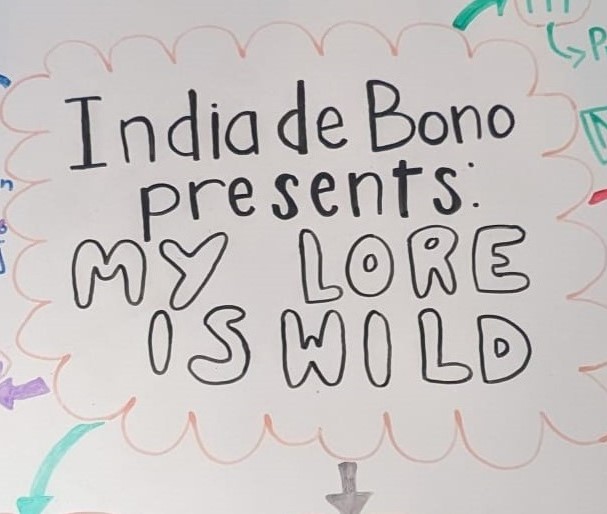 India de Bono
presents:
MY LORE
IS WILD